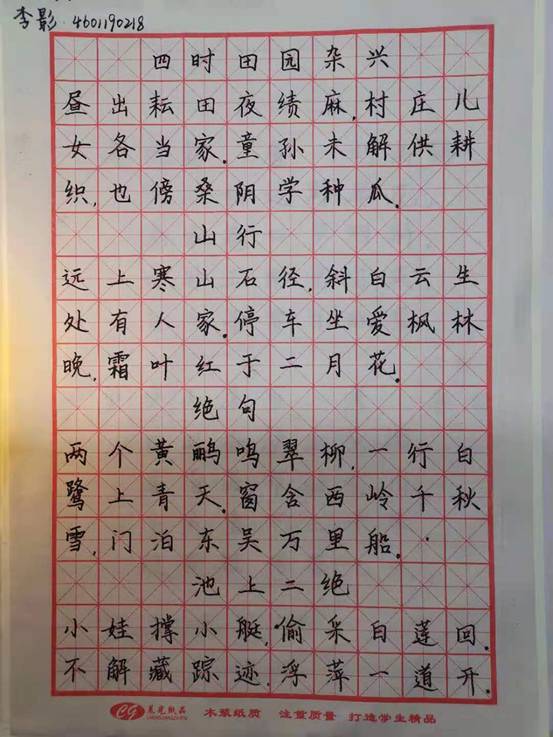 李影 4601190218
四时田园杂兴
昼出耘田夜绩麻,村庄儿
女各当家.童孙未解供耕
织,也傍桑阴学种瓜.
山行
远上寒山石径,斜白云生
处有人家.停车坐爱枫林
晚,霜叶红于二月花.
绝句
两个黄鹂鸣翠柳,一行白
鹭上青天.窗含西岭千秋
雪,门泊东吴万里船.
池上二绝
小娃撑小艇,偷采白莲回.
不解藏踪迹.浮萍一道开.
晨光纸品 木浆纸质 注重质量 打造学生精品